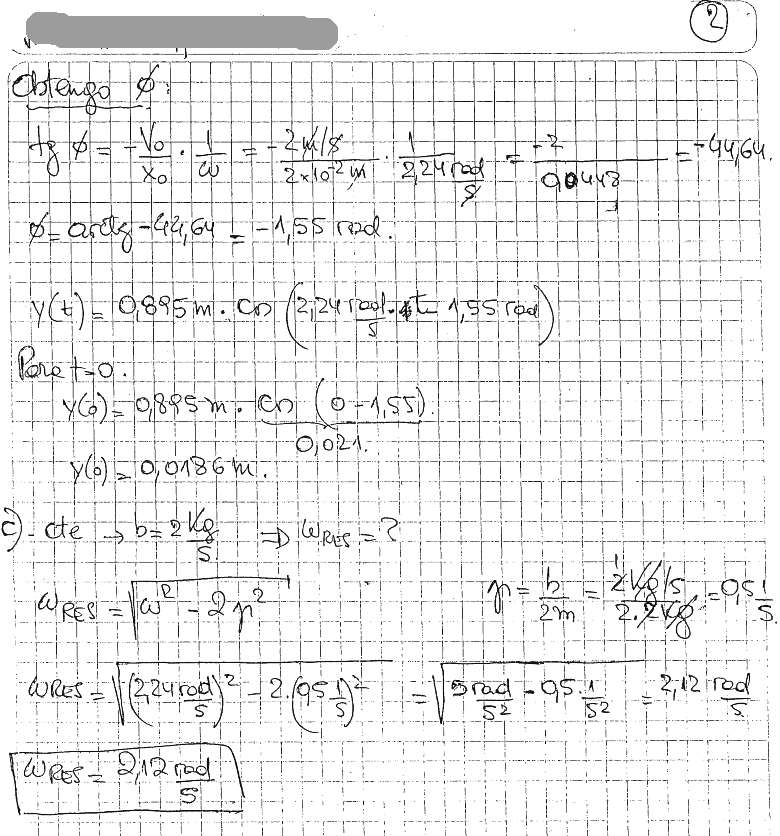 2
Obtengo ø:
tg ø = -V₀/x₀ · 1/ω = -2 m/s / 2×10⁻² m · 1 / 2,24 rad/s = -2 / 0,0448 = -44,64.
ø = arctg -44,64 = -1,55 rad.
y(t) = 0,895 m · cos (2,24 rad/s · t - 1,55 rad)
Para t=0.
y(0) = 0,895 m · cos (0 - 1,55).
0,021.
y(0) = 0,0186 m.
c) - cte → b = 2 Kg/s ⇒ ω RES = ?
ω RES = √(ω² - 2γ²) γ = b/2m = 2 Kg/s / 2·2 Kg = 0,5 1/s.
ω RES = √((2,24 rad/s)² - 2·(0,5 1/s)²) = √(5 rad/s² - 0,5 1/s²) = 2,12 rad/s
ω RES = 2,12 rad/s